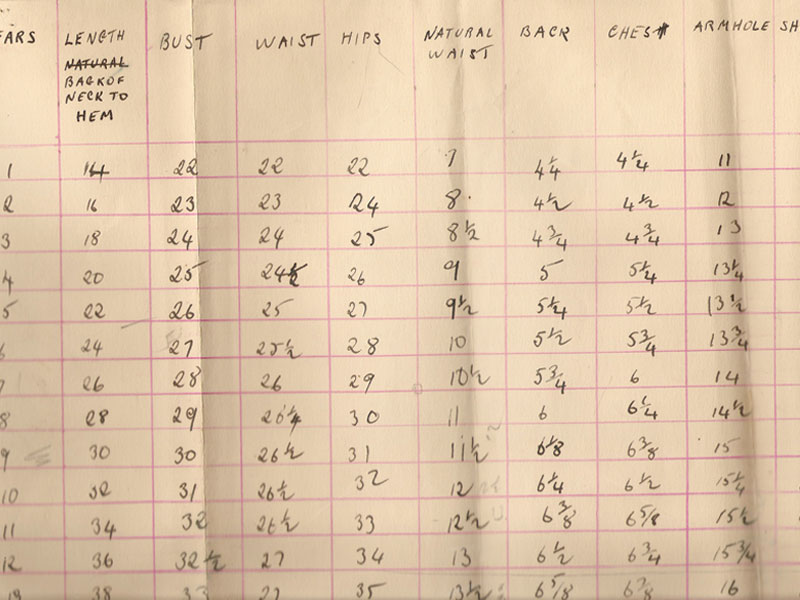 EARS LENGTH BUST WAIST HIPS NATURAL WAIST BACK CHEST ARMHOLE SH
NATURAL
BACK OF
NECK TO
HEM
1 14 22 22 22 7 4¼ 4¼ 11
2 16 23 23 24 8 4½ 4½ 12
3 18 24 24 25 8½ 4¾ 4¾ 13
4 20 25 24½ 26 9 5 5¼ 13¼
5 22 26 25 27 9½ 5¼ 5½ 13½
6 24 27 25½ 28 10 5½ 5¾ 13¾
7 26 28 26 29 10½ 5¾ 6 14
8 28 29 26¼ 30 11 6 6¼ 14½
9 30 30 26½ 31 11½ 6⅛ 6⅜ 15
10 32 31 26½ 32 12 6¼ 6½ 15¼
11 34 32 26½ 33 12½ 6⅜ 6⅝ 15½
12 36 32½ 27 34 13 6½ 6¾ 15¾
13 38 33 27 35 13½ 6⅝ 6⅞ 16